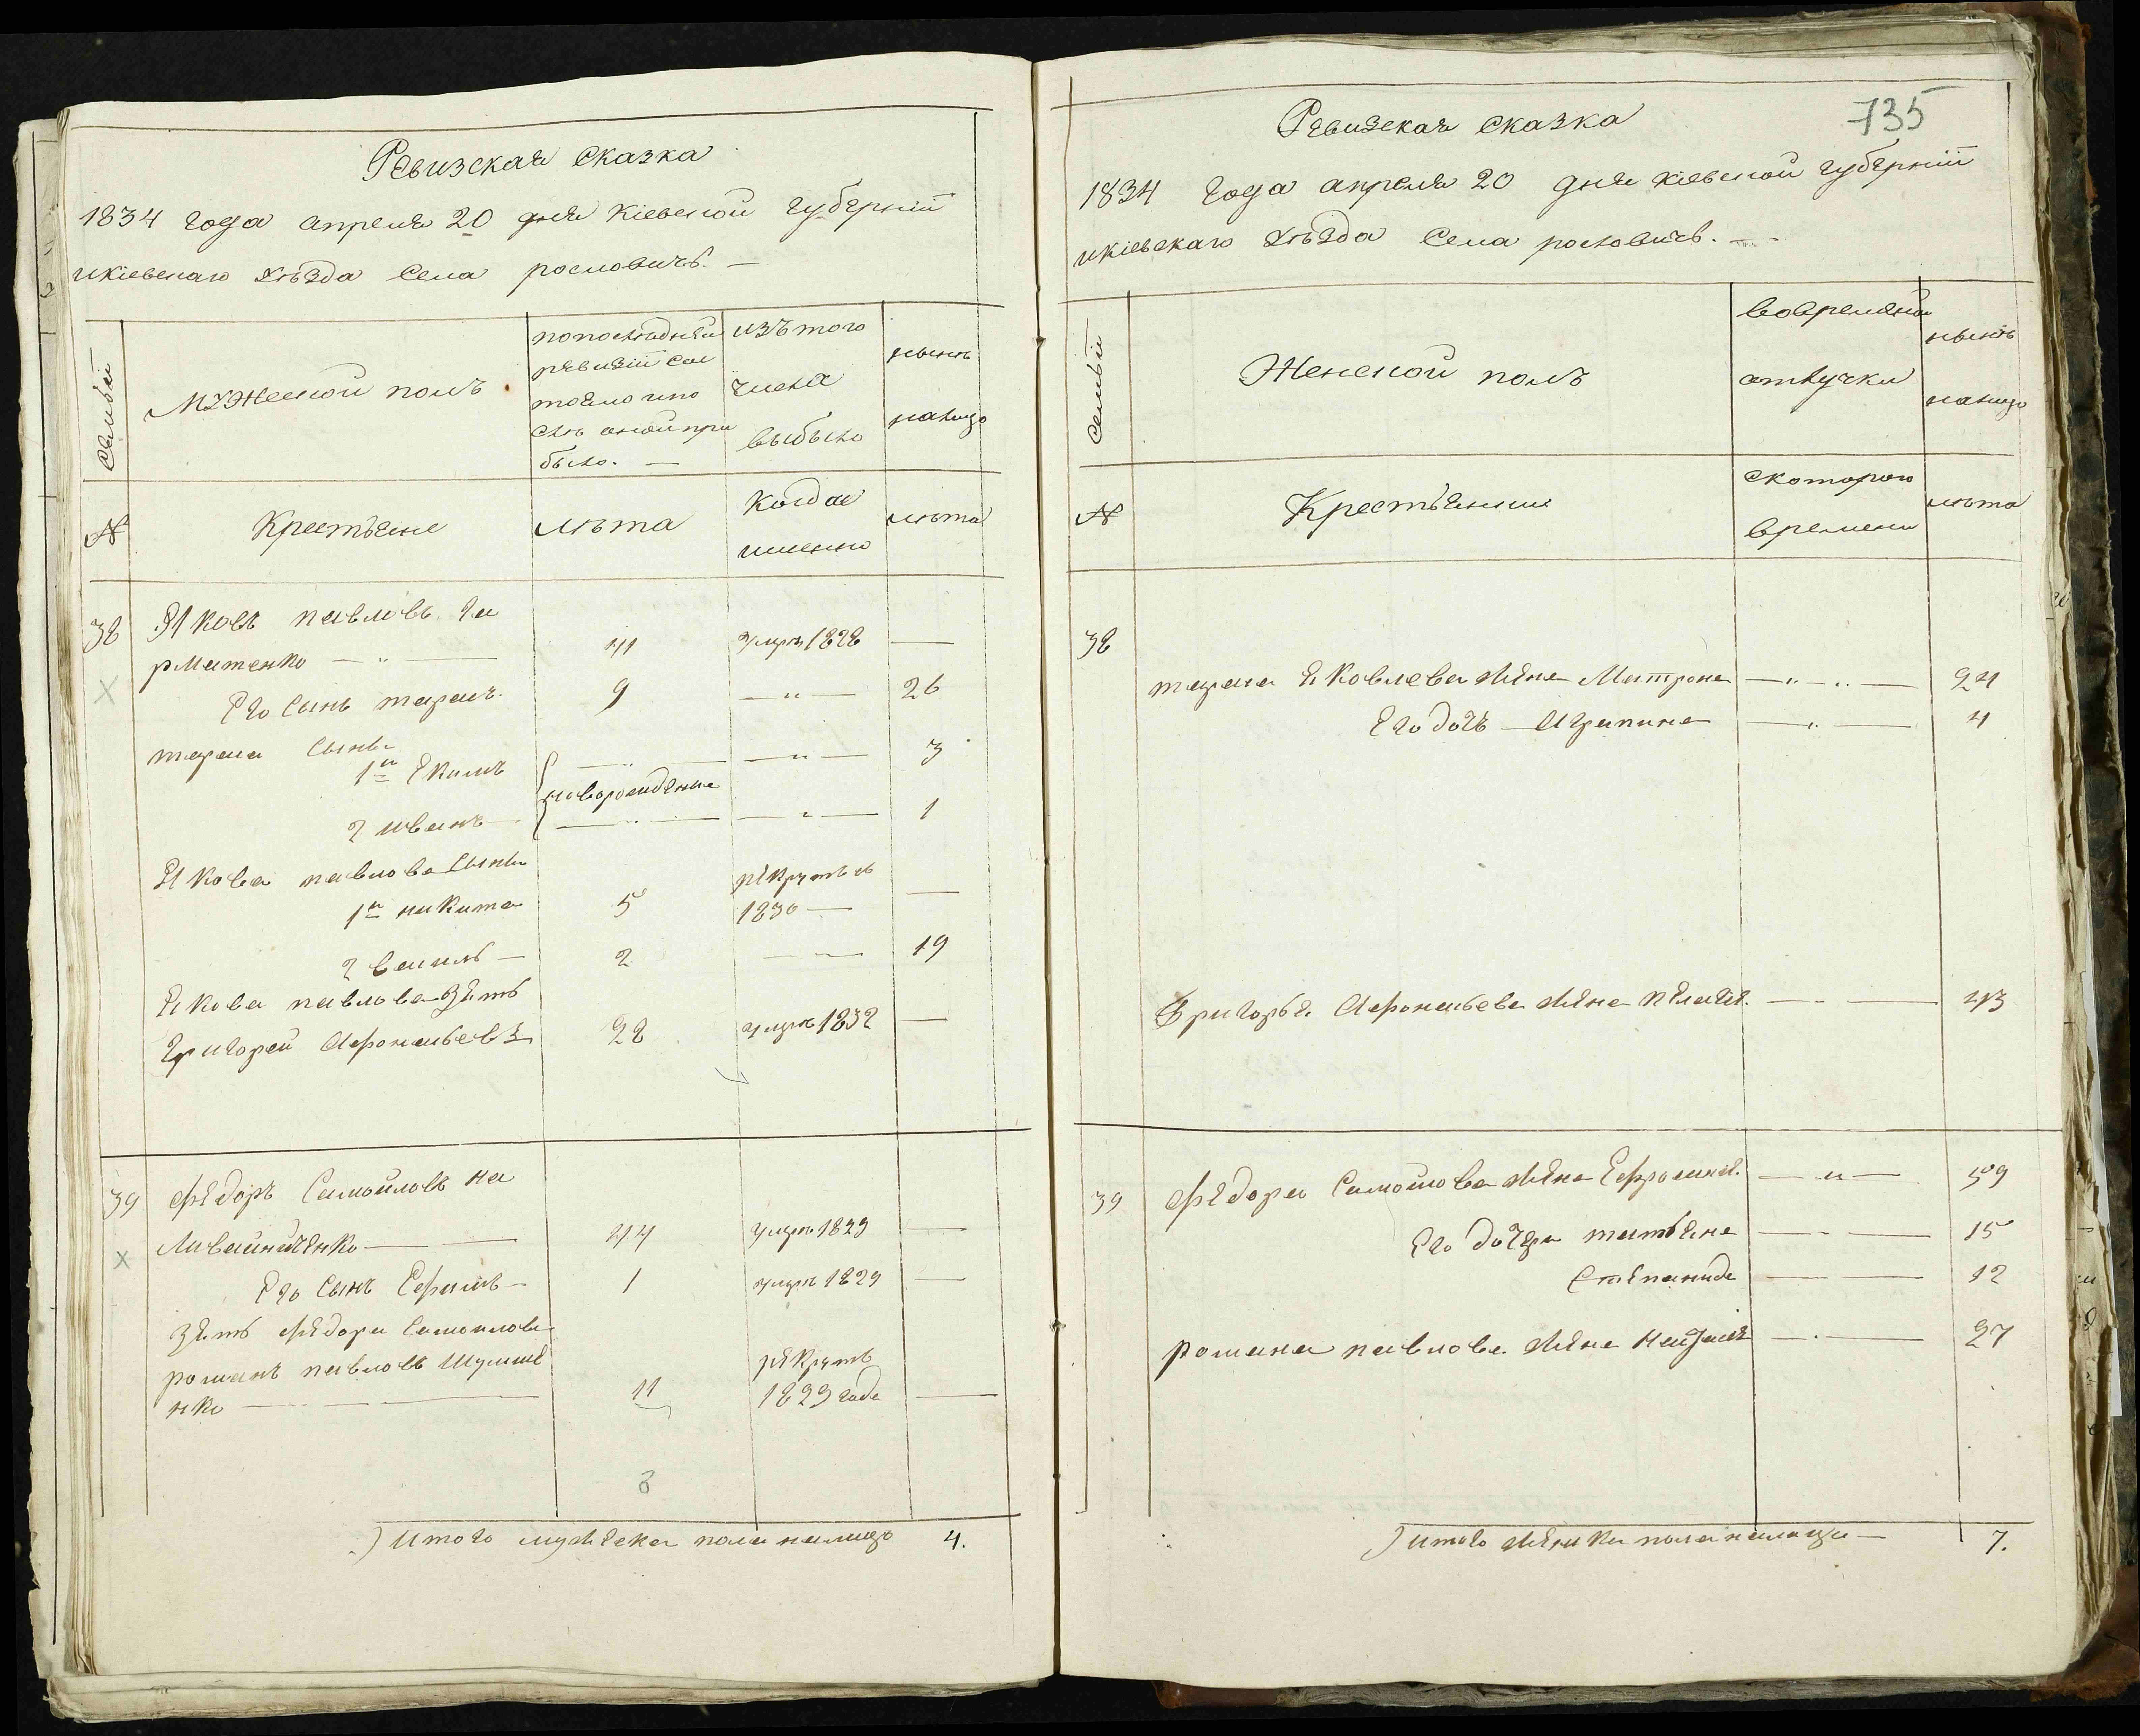 Ревизская сказка
1834 года апреля 20 дня Кіевской губерніи
икіевскаго уѣзда Села рословичъ. —
Семьи
Мужеской полъ
попослѣдней ревизіи сос
тояло ипо
слѣ оной при
было. —
изъ того
числа
выбыло
нынѣ
налицо
№
Крестьяне
лѣта
Когда
именно
лѣта
38 Яковъ павловъ
рматенко — 41 умръ 1828 —
Его Сынъ тарасъ 9 — 26
тараса Сынъ
1й Екимъ — — 3
новорожденые
2 иванъ — — 1
Якова павлова Сынъ
рекрутъ въ
1й никита 5 1830 — —
2 василь — 2 — 19
Якова павлова зять
григорей Афонасьевъ 28 умръ 1832 —
39 Федоръ Самойловъ на
ливайниченко — 44 умръ 1829 —
Его Сынъ Ефимъ — 1 умръ 1829 —
зять Федора Самоилова
романъ павловъ Шуме
рекрутъ
нко — 11 1829 года —
8
Итого мужеска пола налицо 4.
735
Ревизская сказка
1834 года апреля 20 дня Кіевской губерніи
икіевскаго уѣзда Села рословичъ. —
Семьи
Женской полъ
вовременной
отлучки
нынѣ
налицо
№
Крестьянки
скоторого
времени
лѣта
38
тараса Яковлева жена Матрона — 24
Его дочь Агрипина — 4
Григорья Афонасьева жена пелагея — 43
39 Федора Самойлова жена Ефросинія — 59
Его дочери татьяна — 15
Степанида — 12
романа павлова жена Наталя — 27
итого женска пола налицо — 7.